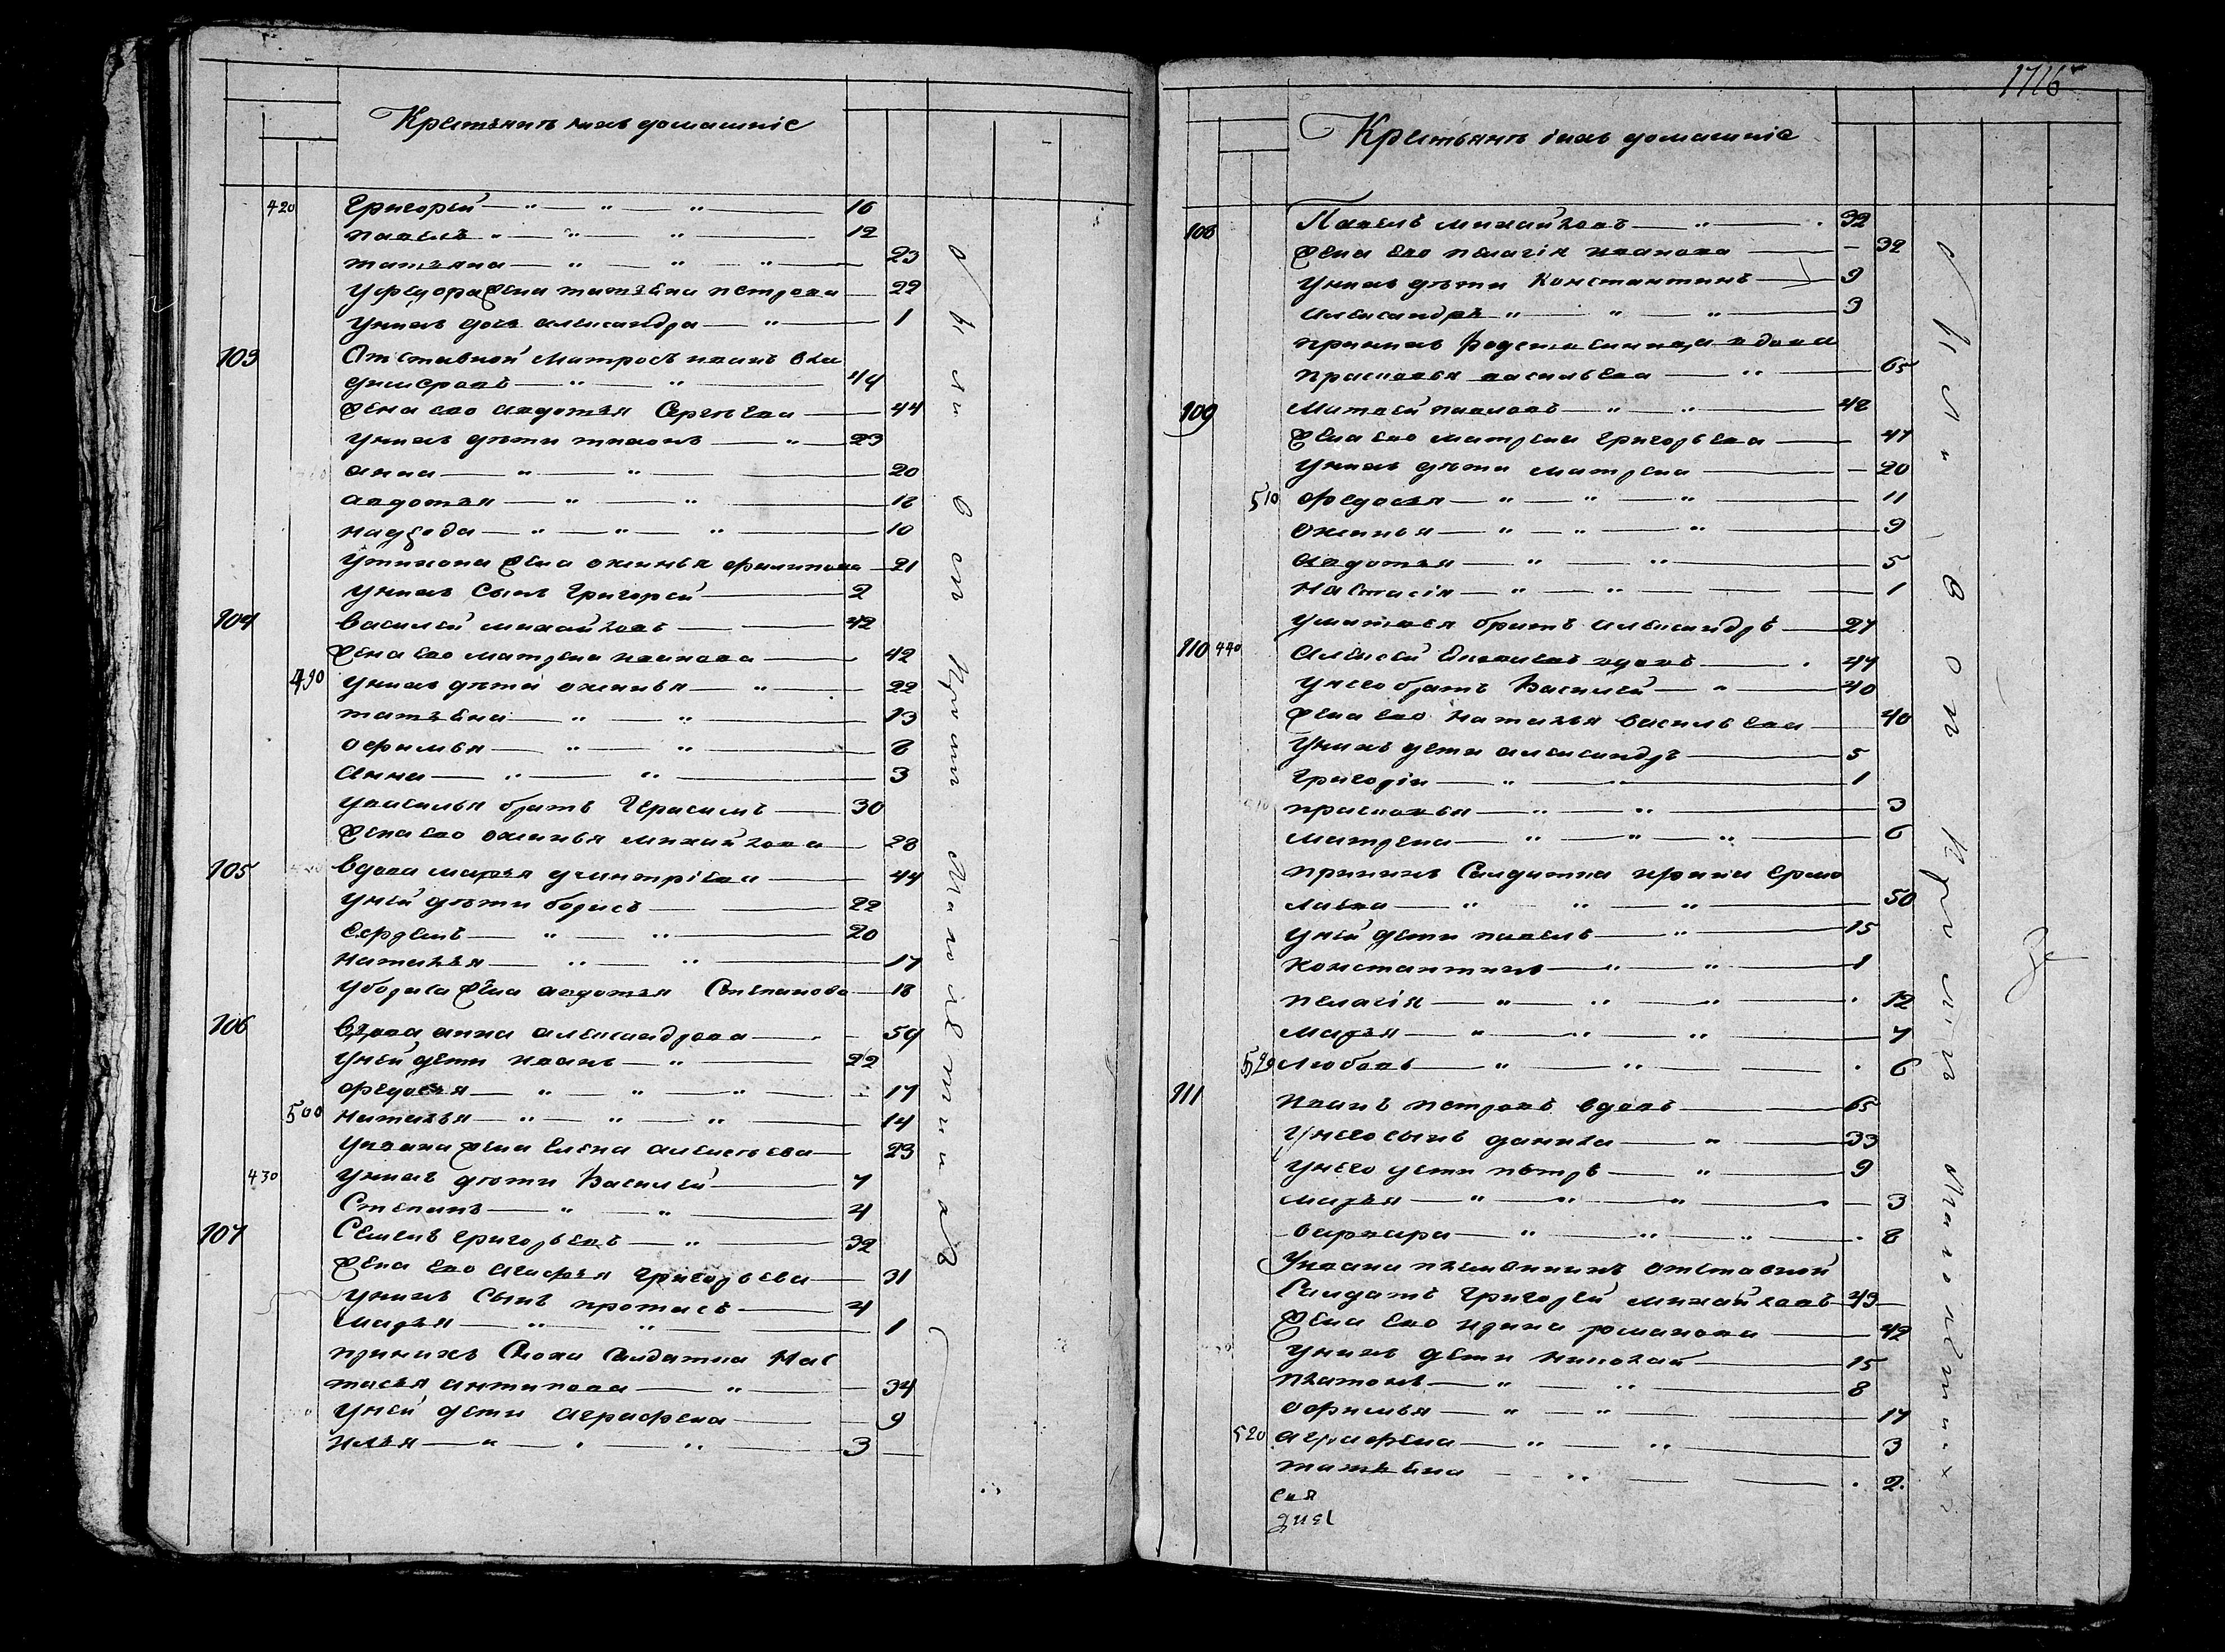 Крестьянъ ихъ домашніе
420 Григорей 16
павелъ 12
татьяна 23
Уфедора жена татьяна петрова 22
Унихъ дочь александра 1
103 Отставной матросъ иванъ вла
димеровъ 44
Жена ево авдотья Сергѣева 44
Унихъ дѣти тихонъ 23
анна 20
авдотья 12
надежда 10
Утихона жена ксинья филипова 21
Унихъ Сынъ Григорей 2
104 Василей михайловъ 42
Жена ево матрена иванова 42
490 Унихъ дѣти аксинья 22
татьяна 13
офимья 8
Анна 3
Увасилья братъ Герасимъ 30
Жена ево аксинья михайлова 28
105 Вдова марья дмитріева 44
Уней дѣти борисъ 22
Сергей 20
наталья 17
Убориса жена авдотья Степанова 18
106 Вдова анна александрова 59
Уней дети иванъ 22
федосья 17
500 наталья 14
Уивана жена Елена алексѣева 23
430 Унихъ дѣти Василей 7
Степанъ 4
107 Семенъ григорьевъ 32
Жена ево агафья Григорьева 31
Унихъ Сынъ протасъ 4
марья 1
принихъ Сноха Салдатка Нас
тасья антипова 34
Уней дети аграфена 9
илья 3
Убыли Вет Крит Малолетнихъ
1716
Крестьянъ ихъ домашніе
108 Павелъ михайловъ 32
Жена ево пелагія иванова 32
Унихъ дѣти Константинъ 9
Александръ 3
принихъ вдова
прасковья васильева 65
109 Матвей павловъ 42
Жена ево матрена григорьева 47
Унихъ дѣти матрена 20
510 федосья 11
Аксинья 9
Авдотья 5
Настасія 1
Уматвея братъ Александръ 27
110 440 Алексей вдовъ 44
Унево братъ Василей 40
Жена ево наталья васильева 40
Унихъ дети александръ 5
григорій 1
прасковья 3
матрена 6
принихъ Салдатка ирина ермо
лаева 50
Уней дети павелъ 15
Константинъ 1
пелагія 12
марья 7
520 Любовь 6
111 Иванъ петровъ вдовъ 65
Унево сынъ данила 33
Унего дети петръ 9
марья 3
варвара 8
Уивана племянникъ отставной
Салдатъ Григорей михайловъ 43
Жена ево ирина романова 42
Унихъ дети николай 15
платонъ 8
офимья 17
520 аграфена 3
татьяна 2